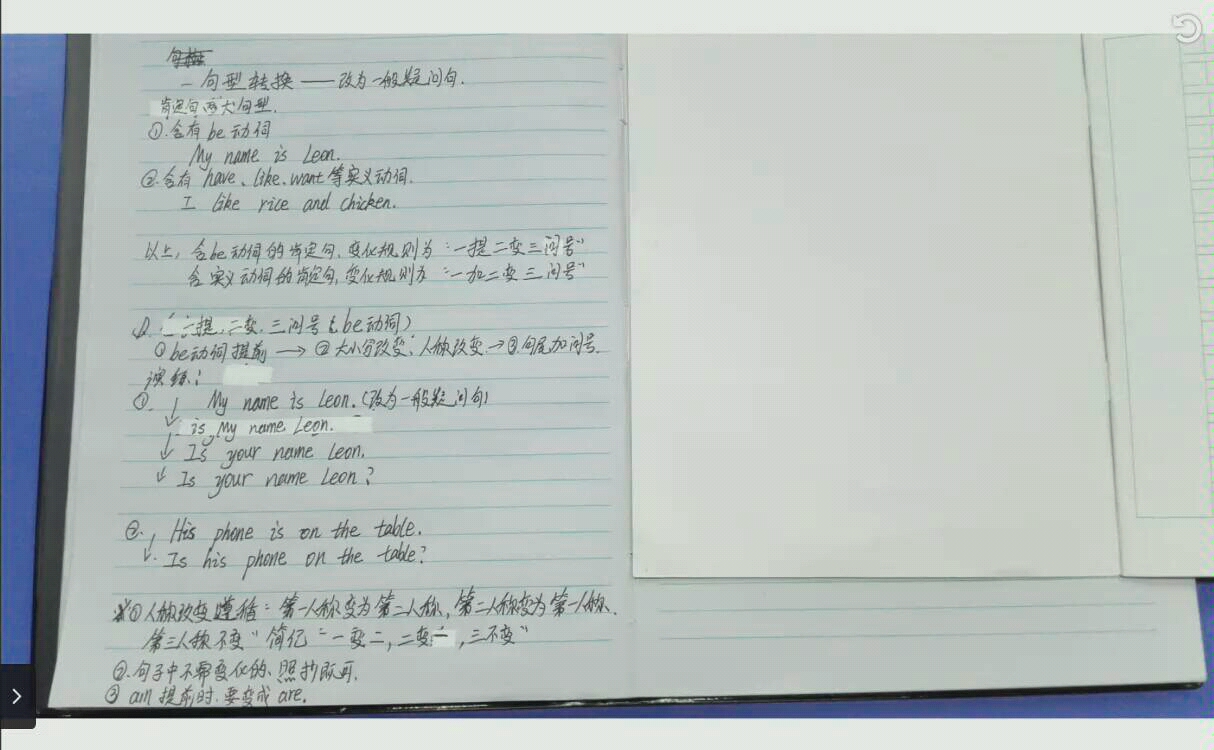 一 句型转换——改为一般疑问句.
肯定句两大句型.
①.含有be动词
My name is Leon.
②.含有 have、like、want等实义动词.
I like rice and chicken.
以上，含be动词的肯定句，变化规则为“一提二变三问号”
含实义动词的肯定句，变化规则为“一加二变三问号”
一提，二变，三问号（be动词）
①be动词提前→②大小写改变；人称改变→③句尾加问号.
演练：
①. My name is Leon.（改为一般疑问句）
is My name Leon.
Is your name Leon.
Is your name Leon?
②. His phone is on the table.
Is his phone on the table?
①人称改变遵循：第一人称变为第二人称，第二人称变为第一人称、
第三人称不变”简记“一变二，二变一，三不变”
②.句子中不需变化的、照抄既可.
③ am提前时.要变成are.